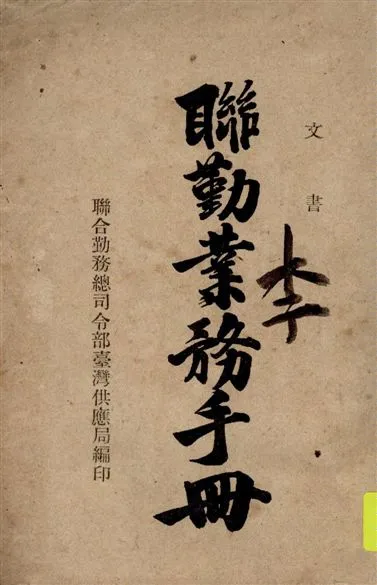 文書
李
聯勤業務手冊
聯合勤務總司令部臺灣供應局編印